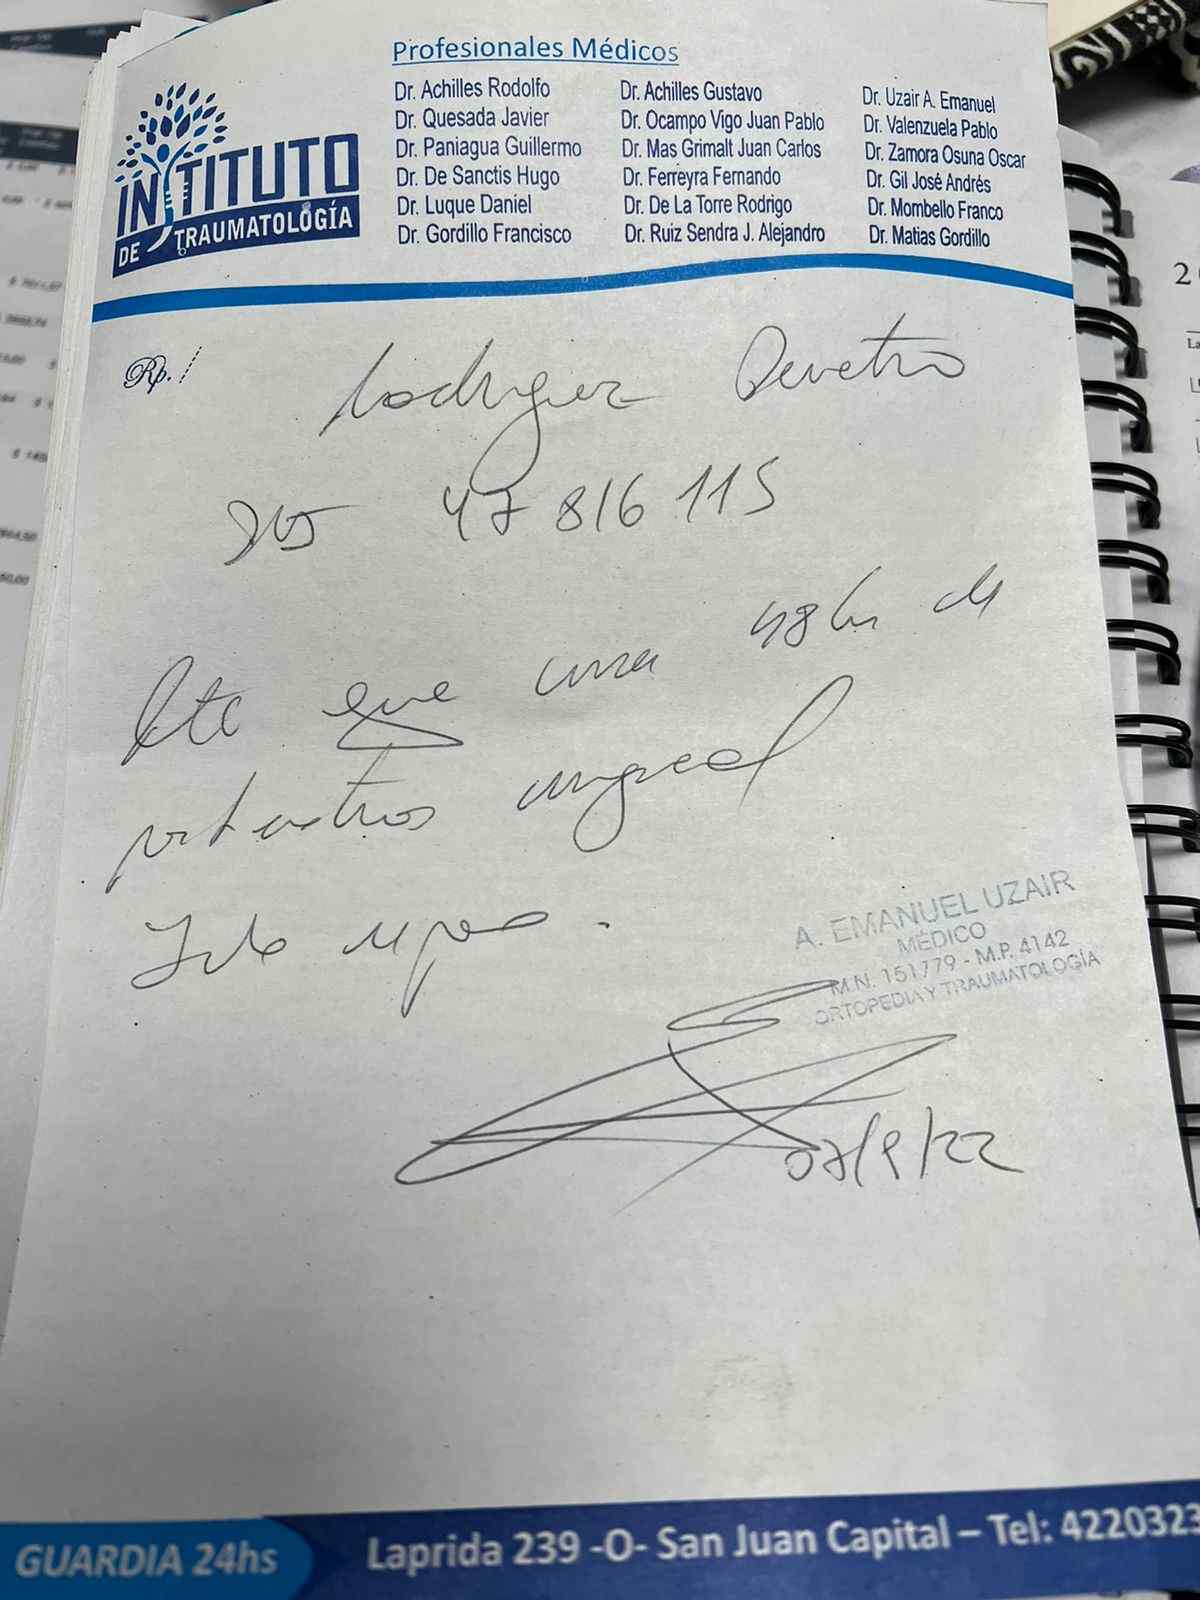 Profesionales Médicos
INSTITUTO
DE TRAUMATOLOGÍA
Dr. Achilles Rodolfo
Dr. Quesada Javier
Dr. Paniagua Guillermo
Dr. De Sanctis Hugo
Dr. Luque Daniel
Dr. Gordillo Francisco
Dr. Achilles Gustavo
Dr. Ocampo Vigo Juan Pablo
Dr. Mas Grimalt Juan Carlos
Dr. Ferreyra Fernando
Dr. De La Torre Rodrigo
Dr. Ruiz Sendra J. Alejandro
Dr. Uzair A. Emanuel
Dr. Valenzuela Pablo
Dr. Zamora Osuna Oscar
Dr. Gil José Andrés
Dr. Mombello Franco
Dr. Matias Gordillo
Rp. /
Rodriguez
47 816 115
que cursa 48 hs de
reposo.
A. EMANUEL UZAIR
MÉDICO
M.N. 151779 - M.P. 4142
ORTOPEDIA Y TRAUMATOLOGÍA
07/9/22
GUARDIA 24hs
Laprida 239 -O- San Juan Capital – Tel: 4220323